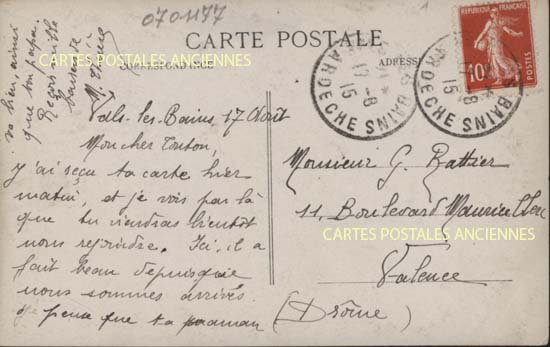 0701177
CARTE POSTALE
CORRESPONDANCE
ADRESSE
CARTES POSTALES ANCIENNES
Vals-les-Bains, 17 Août
Mon cher Tonton,
J'ai reçu ta carte hier
matin, et je vois par là
que tu viendras bientôt
nous rejoindre. Ici, il a
fait beau depuis que
nous sommes arrivés.
Je pense que ta maman
va bien, ainsi
que ton papa.
Reçois mille
baisers de
REPUBLIQUE FRANÇAISE
10
POSTES
BAINS ARDECHE
17-8
15
BAINS ARDECHE
17-8
15
Monsieur G. Rattier
11, Boulevard Maurice Clerc
CARTES POSTALES ANCIENNES
Valence
(Drôme)